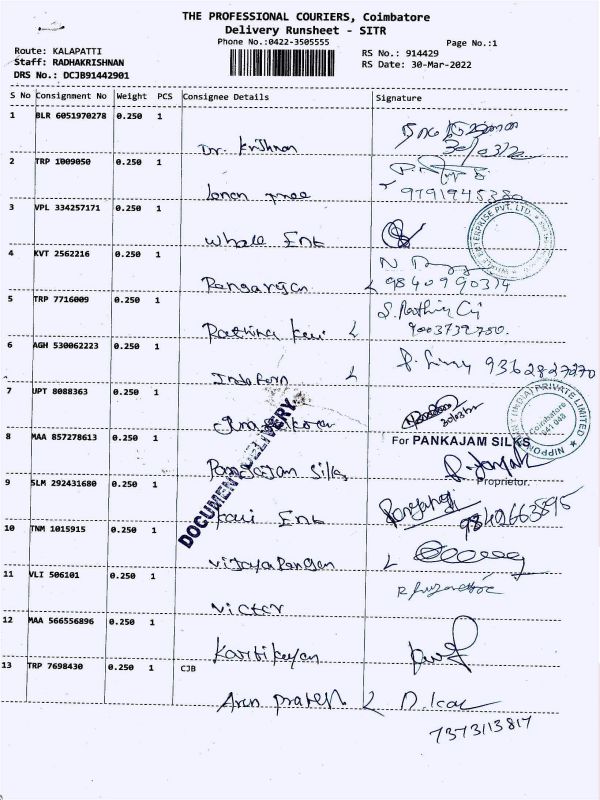 THE PROFESSIONAL COURIERS, Coimbatore
Delivery Runsheet - SITR
Phone No.:0422-3505555
Page No.:1
Route: KALAPATTI
Staff: RADHAKRISHNAN
DRS No.: DCJB91442901
RS No.: 914429
RS Date: 30-Mar-2022
S No Consignment No Weight PCS Consignee Details Signature
1 BLR 6051970278 0.250 1
Dr. Krishnan
30/03/22
2 TRP 1009050 0.250 1
9791945380
3 VPL 334257171 0.250 1
Whale Ent
4 KVT 2562216 0.250 1
Rangarajan
9840990314
5 TRP 7716009 0.250 1
Rathina Kavi
9003732750.
6 AGH 530062223 0.250 1
Indo form
9362827270
7 UPT 8088363 0.250 1
30/03/22
8 MAA 857278613 0.250 1
For PANKAJAM SILKS
Pankajam Silks
Proprietor.
9 SLM 292431680 0.250 1
Kavi Ent
9840663895
10 TNM 1015915 0.250 1
Vijaya Rangan
11 VLI 506101 0.250 1
Victor
12 MAA 566556896 0.250 1
Kartikeyan
13 TRP 7698430 0.250 1 CJB
Arun prakesh
7373113817
DOCUMENT DELIVERY
ENTERPRISE PVT. LTD.
(INDIA) PRIVATE LIMITED
Coimbatore
641 048
NIPPON